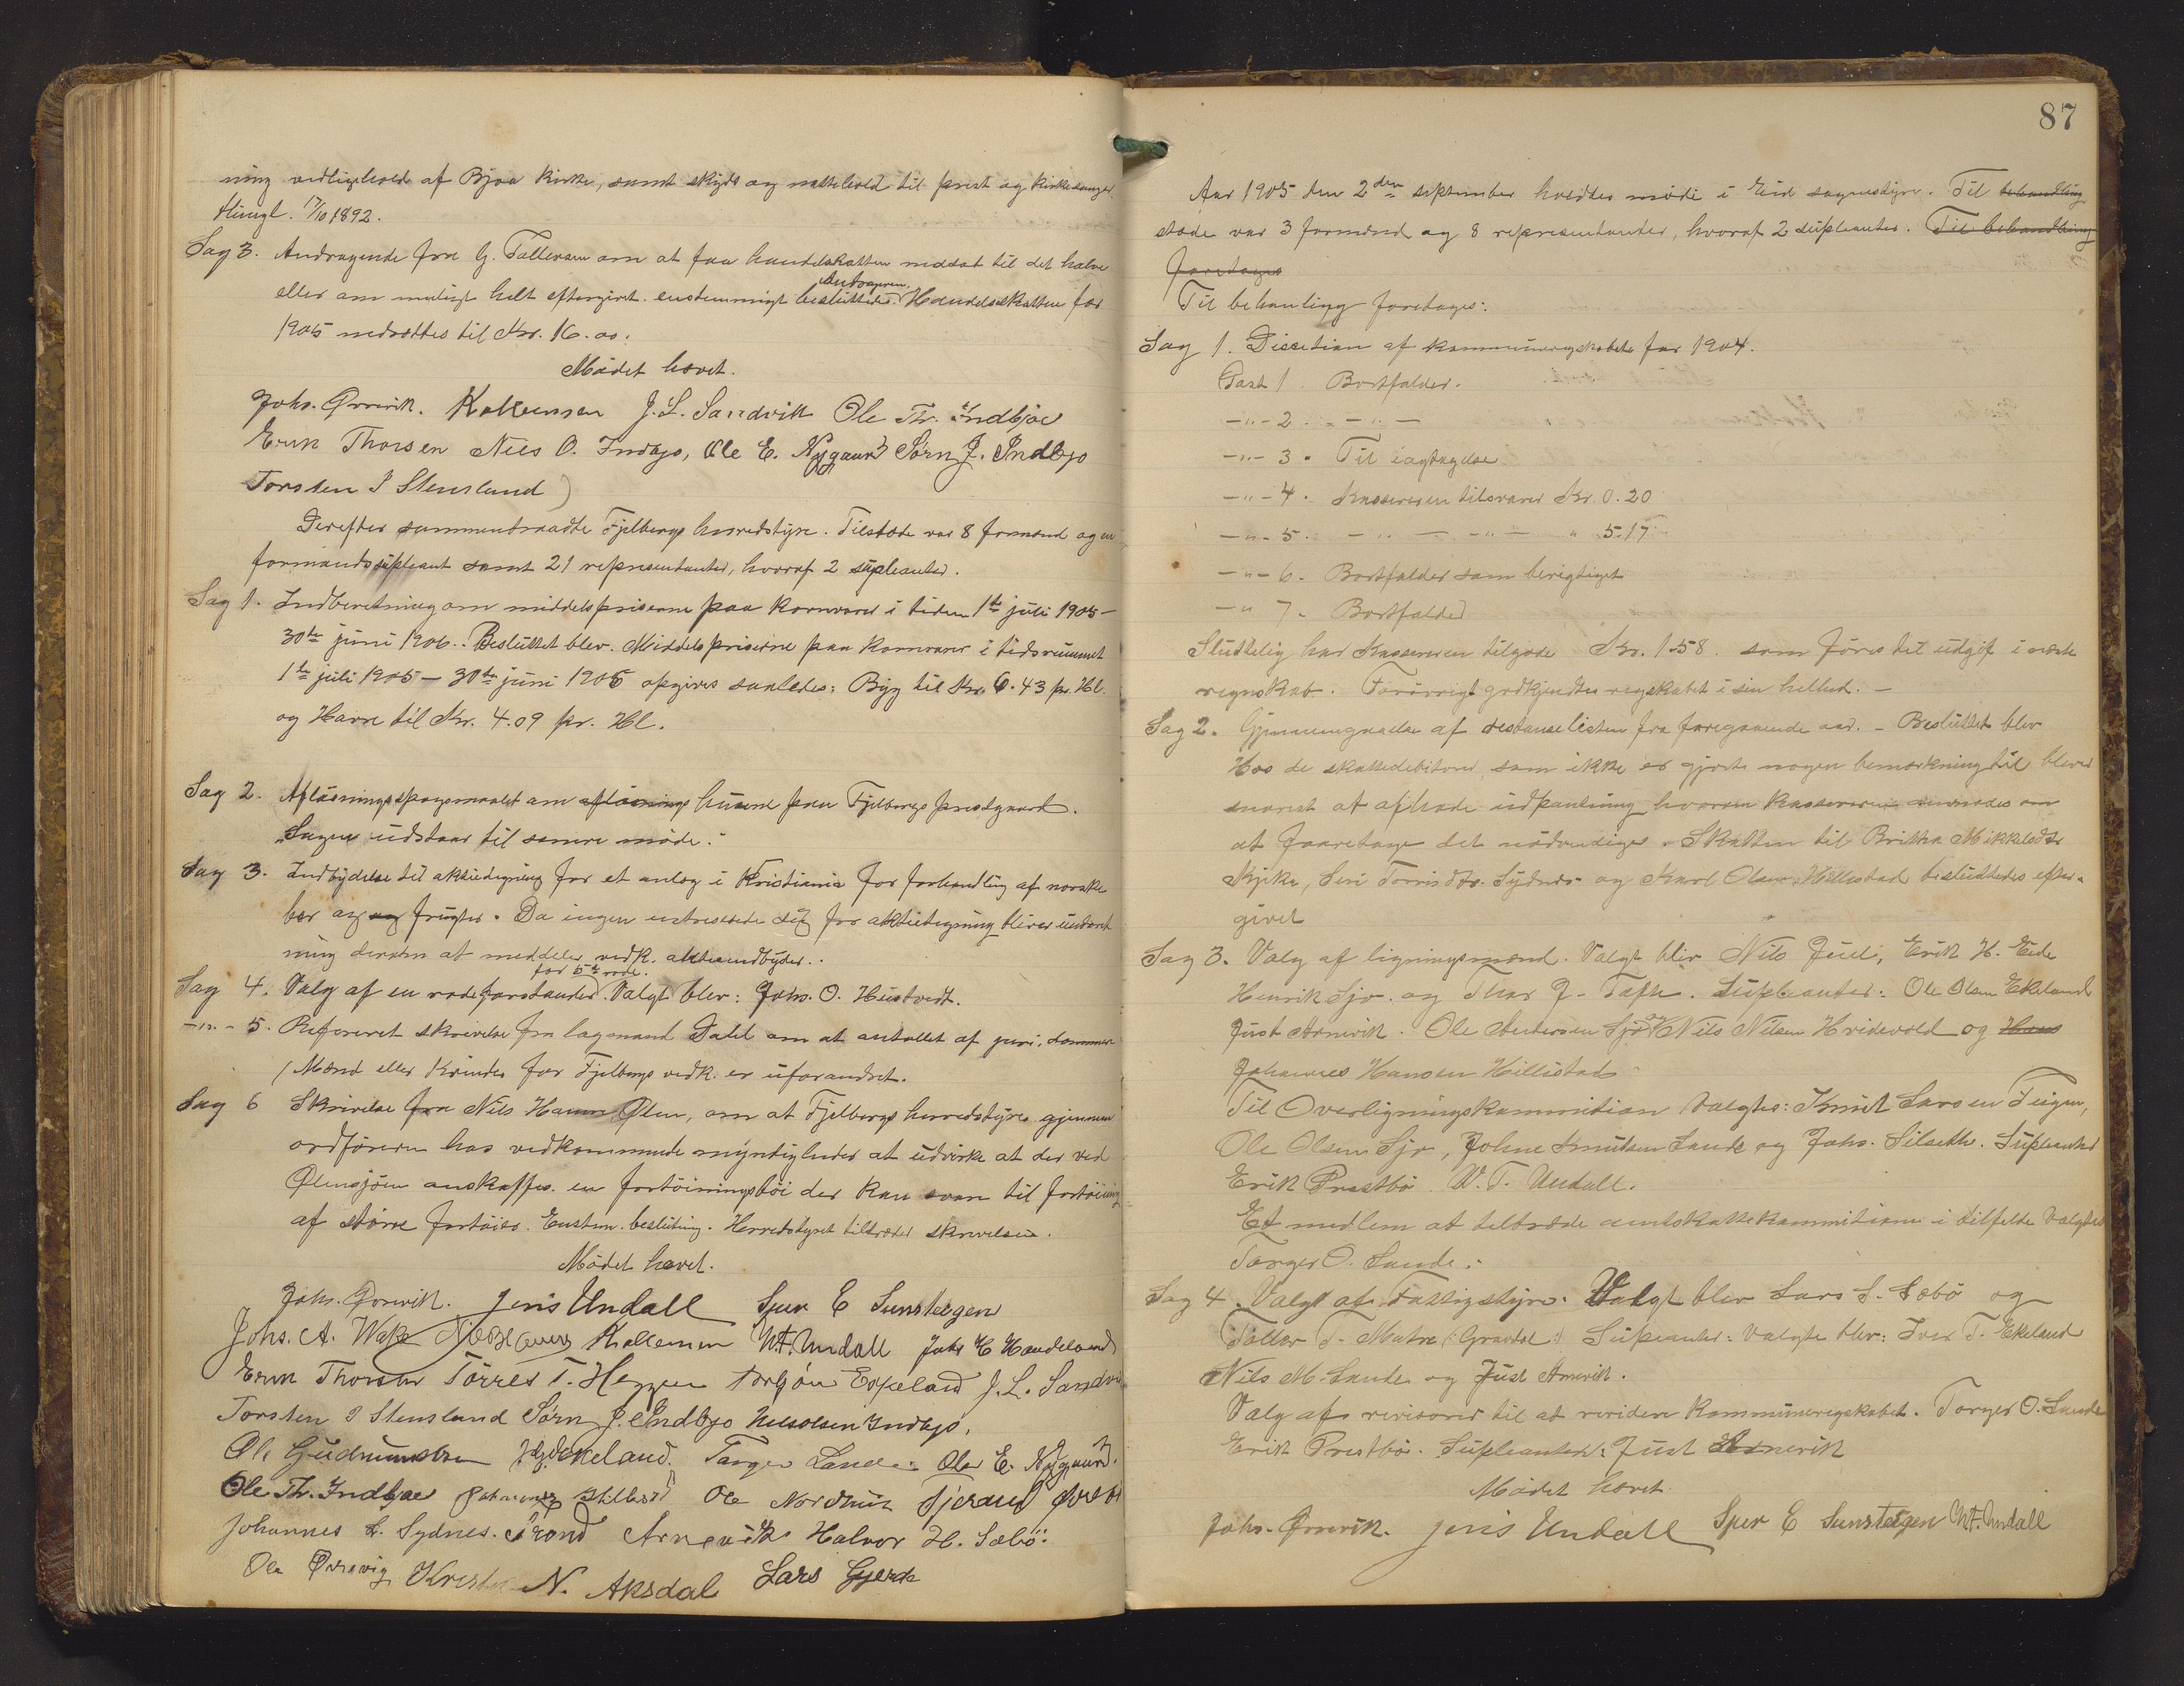 ning vedligehold af Bjoa kirke, samt skyds og nattehold til prest og kirkesanger
Kungl. 17/10 1892.
Sag 3. Andragende fra G. Tollevsen om at faa handelskatten nedsat til det halve
eller om muligt helt eftergivet. enstemmigt besluttedes. Handelsskatten for
1905 nedsættes til Kr. 16.00.
Mödet hævet.
Johs. Ørrevik. K Mikkelsen J. L. Sandvik Ole Th. Indbjoe
Erik Thorsen Niels O. Indbjo, Ole E. Nygaard Sörn J. Indbjo
Torsten I Stensland
Derefter sammentraadte Fjelbergs herredstyre. Tilstede var 8 formænd og en
formandssüpleant samt 21 representanter, hvoraf 2 süpleanter.
Sag 1. Indberetning om middelspriserne paa kornvarer i tiden 1te juli 1905 –
30te juni 1906. Besluttet blev. Middelspriserne paa kornvarer i tidsrummet
1te juli 1905 – 30te juni 1906 opgives saaledes: Byg til Kr. 6.43 pr. Hl.
og Havre til Kr. 4.09 pr. Hl.
Sag 2. Aflösningsspørgsmaalet om aflösnings husene paa Fjelbergs prestgaard.
Sagen udstaar til senere möde.
Sag 3. Indbydelse til aktietegning for et anlæg i Kristiania for forhandling af norske
bær og og frugter. Da ingen interesserede sig for aktietegning bliver underret
ning derom at meddeles vedk. aktieindbyder.
for 5te rode.
Sag 4. Valg af en rodeforstander. Valgt blev: Johs. O. Hustvedt.
–"– 5. Refereret skrivelse fra lagmand Dahl om at antallet af juri, dommer
/Mænd eller Kvinder for Fjelbergs vedk. er uforandret.
Sag 6 Skrivelse fra Nils Haun Ølen, om at Fjelbergs herredstyre gjennem
ordföreren hos vedkommende myndigheder at udvirke at der ved
Ølensjöen anskaffes en fortöiningsböi der kan svare til fortöining
af större fartöier. Enstem. beslutning. Herredstyret tiltræder skrivelsen.
Mödet hævet.
Johs. Ørrevik. Jens Undall Sjur E Sunstegen
Johs. A. Wake W. T. Undall Johs E Handeland
Erik Thorsen Törres T. Heggen Torbjön Espeland J. L. Sandvik
Torsten I Stensland Sörn J. Indbjo Nels Olsen Indbjo,
Ole Gudmundsen Ekeland. Torger Lande Ole E. Nygaard.
Ole Th. Indbjoe Johannes Ole Nordhus
Johannes L. Sydnes. Trond Arnevik Halvor H. Sæbö.
Ole Ørrevig Krist N. Aksdal Lars Gjerde
87
Aar 1905 den 2den september holdtes möde i Eid sognestyre. Til behandling
stæde var 3 formænd og 8 representanter, hvoraf 2 süpleanter. Til behandling
foretages
Til behanling foretages:
Sag 1. Dicection af kommuneregnskabet for 1904.
Post 1. Bortfalder.
–"– 2. – " –
–"– 3. Til iagtagelse
–"– 4. Kassereren tilsvarer Kr. 0.20
–"– 5. – " – – " – " 5.17
–"– 6. Bortfalder som berigtiget
–" 7. Bortfalder
Sluttelig har Kassereren tilgode Kr. 1.58. som föres til udgift i næste
regnskab. Forövrigt godkjendtes regskabet i sin helhed. –
Sag 2. Gjennemgaaelse af restanselisten fra foregaaende aar. – Besluttet blev
Hos de skattedebitorer, som ikke er gjort nogen bemærkning til bliver
snarest at afholde udpantning hvorom Kassereren anmodes om
at foretage det nödvendige. Skatten til Britha Mikkelsdtr
Skjeke, Siri Torrisdtr. Sydnes og Karl Olsen Hillestad besluttedes efter-
givet
Sag 3. Valg af ligningsmænd. Valgt blev Nils Juul, Erik H. Eide
Henrik Sjo. og Thor J. Tofte. Süpleanter: Ole Olsen Ekeland
Just Arnevik. Ole Andersen Sjo og Nils Nilsen Hvidevold og Hans
Johannes Hansen Hillestad
Til Overligningskommition valgtes: Knut Larsen Teigen,
Ole Olsen Sjo, Johne Knutsen Lande og Johs. Silseth. Süpleanter
Erik Prestbö W. T. Undall.
Et medlem at tiltræde amtskattekommitionen i tilfelde valgtes
Torger O. Lande.
Sag 4. Valgt af Fattigstyre. Valgt blev Lars S. Sæbö og
Tollev T. Matre (: Gravdal :) Süpleanter: valgte blev: Iver T. Ekeland
Nils M. Lande og Just Arnevik.
Valg af revisorer til at revidere Kommuneregskabet. Torger O. Lande
Erik Prestbö. Süpleanter: Just Arnevik
Mödet hævet
Johs. Ørrevik. Jens Undall Sjur E Sunstegen W. T. Undall